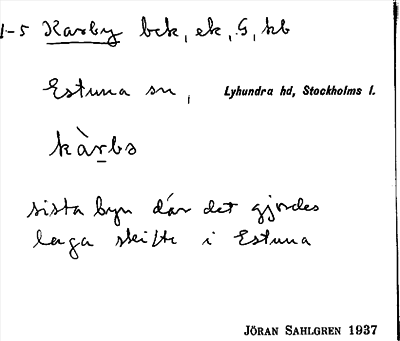 1-5 Karby bck, ek, S, kb
Estuna sn, Lyhundra hd, Stockholms l.
kàrbo
sista byn där det gjordes
laga skifte i Estuna
JÖRAN SAHLGREN 1937